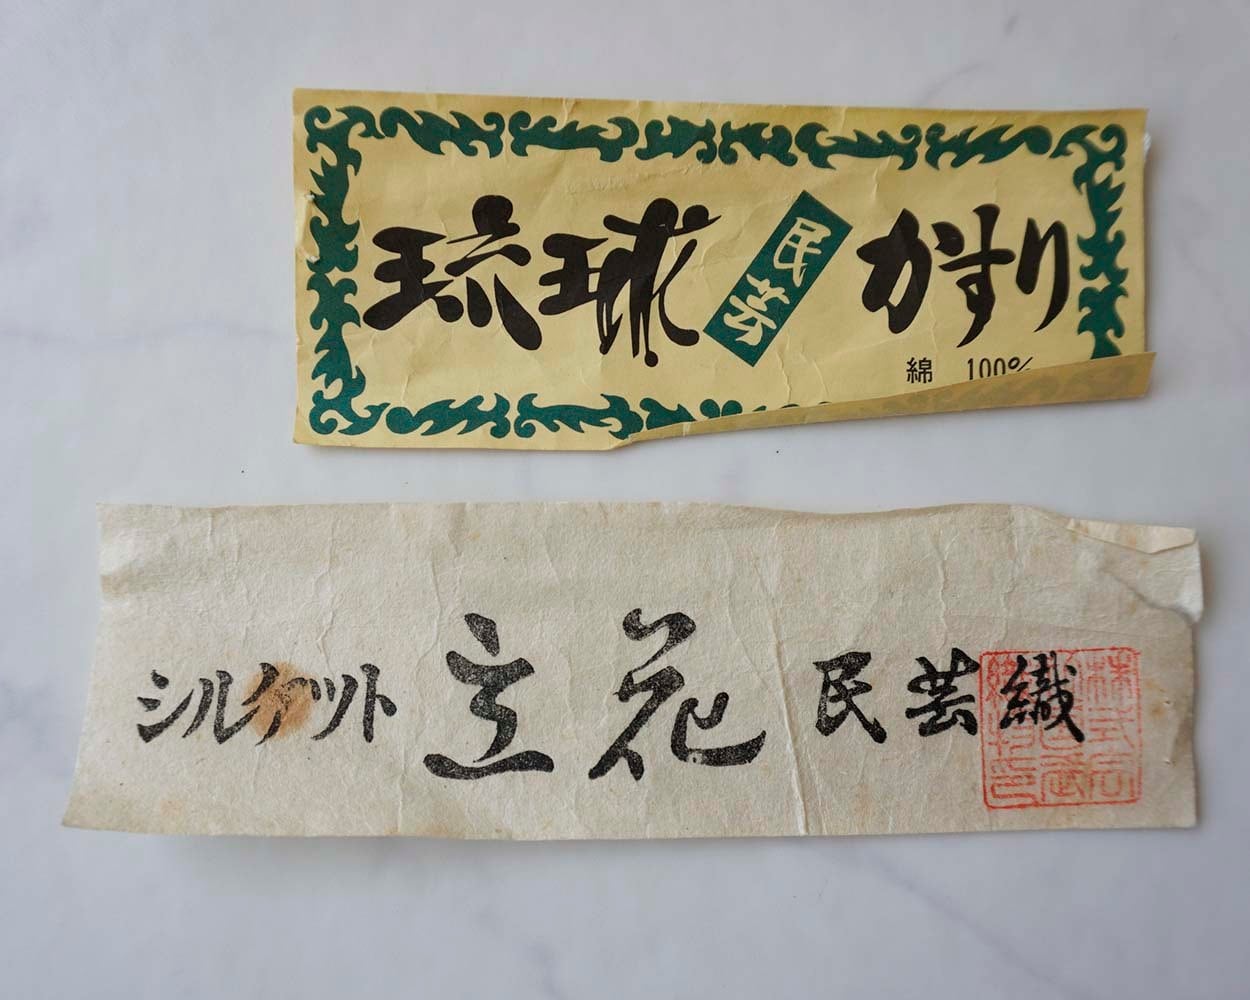 琉球 民芸 かすり
綿 100%
シルケット 立花 民芸織